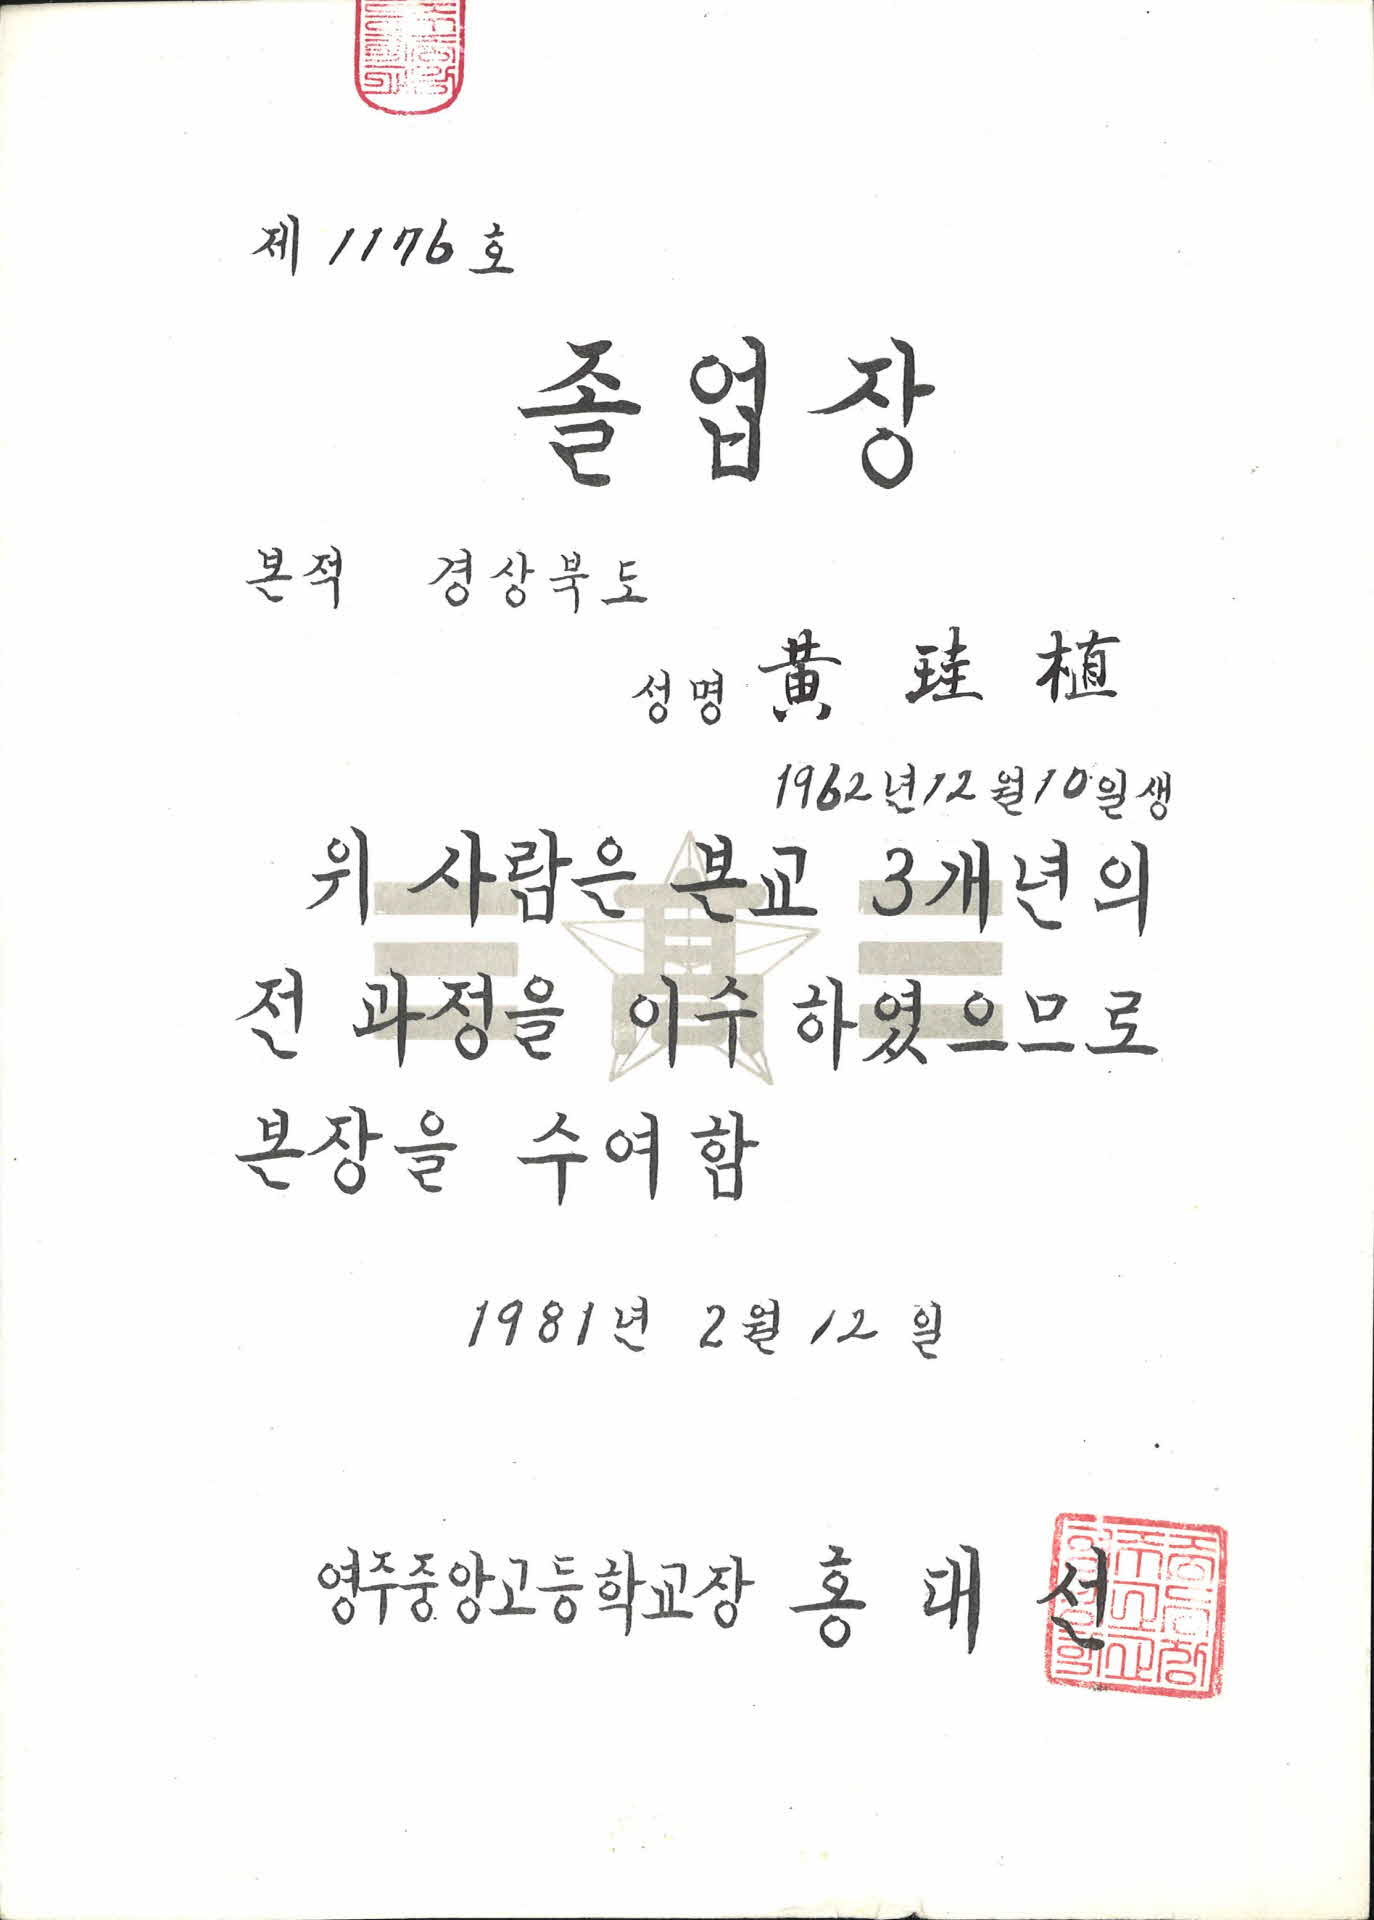 제 1176 호
졸업장
본적 경상북도
성명 黃珪植
1962년 12월 10일생
위 사람은 본교 3개년의
전 과정을 이수하였으므로
본장을 수여함
1981년 2월 12일
영주중앙고등학교장 홍대선